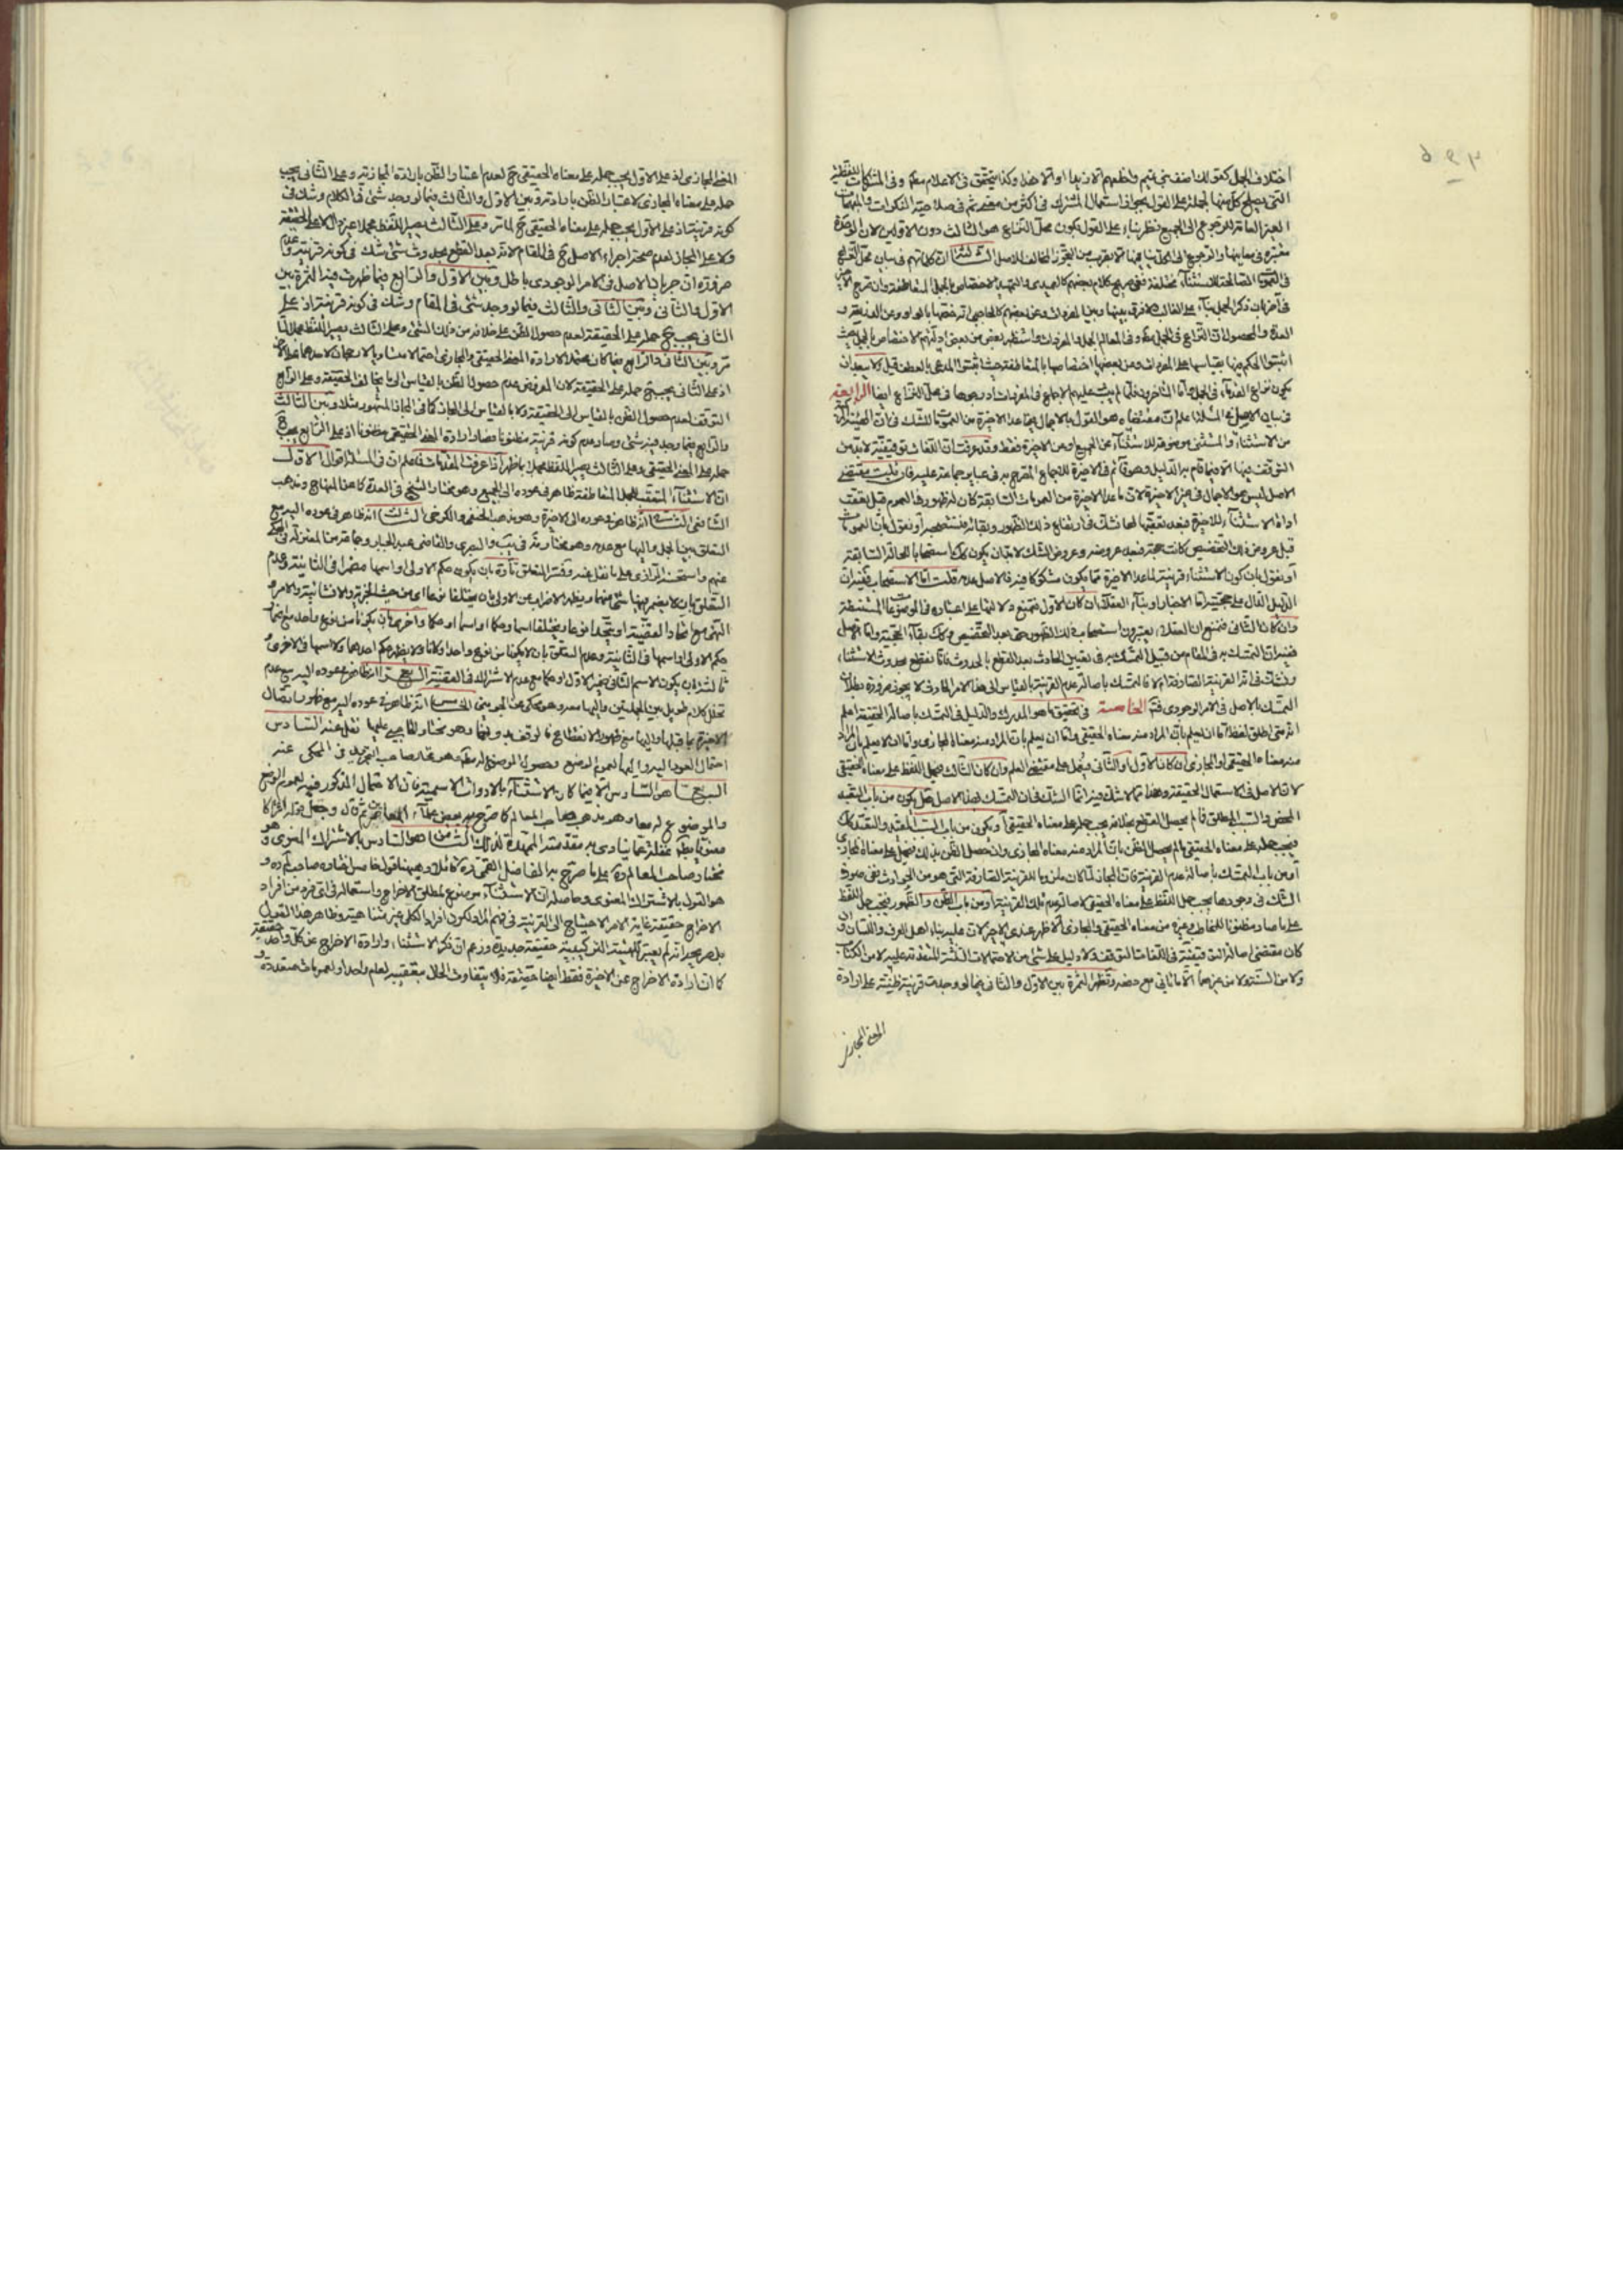 اختلاف الجمل كقولك اضف بني تميم واطعمهم الا زيدا او الا هذا وكذا يتحقق في الاعلام وفي المشتركات اللفظية
التي يصلح كل منها لجملة على القول بجواز استعمال المشترك في اكثر من معنى ثم في صلاحية النكرات والمبهمات
الغير العامة للرجوع الى الجميع نظر بناء على القول بكون محل النزاع هو الثالث دون الاولين لان
معتبرة في معانيها والرجوع الى الكل ينافيها الا بضرب من التجوز المخالف للاصل الثالثة ان كلماتهم في بيان محل النزاع
في الصالحة للاستثناء مختلفة ففي صريح كلام بعضهم كالعميدي والتمهيد الاختصاص بالجمل المتعاطفة
في اخر بان ذكر الجمل بناء على الغالب فلا فرق بينها وبين المفردات وعن بعضهم كالحاجبي انه خصها بالواو وعن الذريعة و
العدة والمحصول ان النزاع في الجمل وفي المعالم الجمل والمفردات واستظهر بعض من بعض ادلتهم الاختصاص بالجمل حيث
اثبتوا الحكم فيها بقياسها على المفردات ومن بعضها اختصاصها بالمتعاطفة حيث اثبتوا المدعى بالعطف قيل ولا يبعد ان
يكون نزاع القدماء في الجمل واما المتاخرون فلما لم يثبت عليهم الاجماع في المفردات ادرجوها في محل النزاع ايضا الرابعة
في بيان الاصل في المسئلة اعلم ان مقتضاه هو القول بالاجمال فيما عدا الاخيرة من العمومات للشك في ان الهيئة
من الاستثناء والمستثنى موضوعة للاستثناء عن الجميع او عن الاخيرة فقط وقد عرفت ان اللغات توقيفية لا بد من
التوقف فيها الا فيما قام به الدليل وهو قائم في الاخيرة للاجماع المصرح به في عباير جماعة عليه فان قلت مقتضى
الاصل ليس هو الاجمال في غير الاخيرة لان ما عدا الاخيرة من العمومات السابقة كان له ظهور في العموم قبل تعقب
اداة الاستثناء للاخيرة فبعد تعقبها لها نشك في ارتفاع ذلك الظهور وبقائه فنستصحبه او نقول بان العمومات
قبل عروض ذلك التخصيص كانت حجة فبعد عروضه وعروض الشك لا بد ان يكون كذلك استصحابا للحالة السابقة
او نقول بان كون الاستثناء قرينة لما عدا الاخيرة مما يكون مشكوكا فيه فالاصل عدمه قلت اما الاستصحاب ففيه ان
الدليل الدال على حجيته اما الاخبار او بناء العقلاء فان كان الاول فنمنع دلالتها على اعتباره في الموضوعات المستنبطة
وان كان الثاني فنمنع ان العقلاء يعتبرون استصحاب ذلك الظهور حتى بعد التخصيص وكذلك بقاء الحجية واما الاصل
ففيه ان التمسك به في المقام من قبيل التمسك به في تعيين الحادث بعد القطع بالحدوث فانا نقطع بحدوث الاستثناء
ونشك في انه القرينة الصارفة ام لا فالتمسك باصالة عدم القرينة بالقياس الى هذا الامر الحادث لا يجوز ضرورة بطلان
التمسك بالاصل في الامر الوجودي فتم الخامسة في تحقيق ما هو المدرك والدليل في التمسك باصالة الحقيقة اعلم
انه متى اطلق لفظ فاما ان يعلم بان المراد منه معناه الحقيقي واما ان يعلم بان المراد منه معناه المجازي واما ان لا يعلم بان المراد
منه معناه الحقيقي او المجازي فان كان الاول او الثاني فيعمل على مقتضى العلم وان كان الثالث فيحمل اللفظ على معناه الحقيقي
لان الاصل في الاستعمال الحقيقة وهذا مما لا شك فيه وانما الشك في ان التمسك بهذا الاصل هل يكون من باب التعبد
المحض والسبب المطلق فما لم يحصل القطع بخلافه يجب حمله على معناه الحقيقي او يكون من باب السبب المقيد والتعبد
فيجب حمله على معناه الحقيقي ما لم يحصل الظن بان المراد منه معناه المجازي وان حصل الظن بذلك فيحمل على معناه المجازي
او من باب التمسك باصالة عدم القرينة فان المجاز لما كان ملزوما للقرينة الصارفة التي هو من الحوادث ففي صورة
الشك في وجودها يجب حمل اللفظ على معناه الحقيقي لاصالة عدم تلك القرينة او من باب الظن والظهور فيجب حمل اللفظ
على ما صار مظنونا للمخاطب وغيره من معناه الحقيقي والمجازي الاظهر عندي الاخير لان عليه بناء اهل العرف واللسان وان
كان مقتضى اصالة التوقيفية في اللغات التوقف ولا دليل على شئ من الاحتمالات الثلثة المتقدمة عليه لا من الكتاب
ولا من السنة ولا من غيرهما الا ما ياتي مع ضعفه وتظهر الثمرة بين الاول والثاني فيما لو وجدت قرينة ظنية على ارادة
المعنى المجازي
المعنى المجازي اذ على الاول يجب حمله على معناه الحقيقي ح لعدم اعتبار الظن بارادة المجاز فيه وعلى الثاني يجب
حمله على معناه المجازي لاعتبار الظن بارادته وبين الاول والثالث فيما لو وجد شئ في الكلام وشك في
كونه قرينة اذ على الاول يجب حمله على معناه الحقيقي ح لما مر وعلى الثالث يصير اللفظ مجملا غير دال لا على الحقيقة
ولا على المجاز لعدم صحة اجراء الاصل ح في المقام لانه بعد القطع بحدوث شئ شك في كونه قرينة وعدمه
ضرورة ان جريان الاصل في الامر الوجودي باطل وبين الاول والرابع فيما ظهرت فيه الثمرة بين
الاول والثاني وبين الثاني والثالث فيما لو وجد شئ في المقام وشك في كونه قرينة اذ على
الثاني يجب ح حمله على الحقيقة لعدم حصول الظن على خلافه من ذلك الشئ وعلى الثالث يصير اللفظ مجملا لما
مر وبين الثاني والرابع فيما كان محتملا لارادة المعنى الحقيقي والمجازي احتمالا متساويا لا رجحان لاحدهما على الاخر
اذ على الثاني يجب ح حمله على الحقيقة لان المفروض عدم حصول الظن بالقياس الى ما يخالف الحقيقة وعلى الرابع
التوقف لعدم حصول الظن بالقياس الى الحقيقة ولا بالقياس الى المجاز كما في المجاز المشهور مثلا وبين الثالث
والرابع فيما وجد فيه شئ وصار عدم كونه قرينة مظنونا فصار ارادة المعنى الحقيقي مظنونا اذ على الرابع يجب ح
حمله على المعنى الحقيقي وعلى الثالث يصير اللفظ مجملا اذا عرفت المقدمات فاعلم ان في المسئلة اقوال الاول
ان الاستثناء المتعقب للجمل المتعاطفة ظاهر في عوده الى الجميع وهو مختار الشيخ في العدة كما عن المنهاج ومذهب
الشافعي الثاني انه ظاهر في عوده الى الاخيرة وهو مذهب الحنفي والكرخي الثالث انه ظاهر في عوده اليه مع
التعلق بين الجمل واليها مع عدمه وهو مختار يب والبصري والقاضي عبد الجبار وجماعة من المعتزلة
عنهم واستحسنه الرازي على ما نقل عنه وفسر التعلق تارة بان يكون حكم الاولى او اسمها مضمرا في الثانية وعدم
التعلق بان لا يضمر فيها شئ منهما ويظهر الاضراب عن الاولى بان يختلفا نوعا اي من حيث الخبرية والانشائية والامر و
النهي مع اتحاد القضية او يتحدا نوعا ويختلفا اسما وحكما او اسما او حكما واخرى بان يكونا من نوع واحد مع اضمار
حكم الاولى او اسمها في الثانية وعدم التعلق بان لا يكونا من نوع واحد او كانا ولا يضمر حكم احدهما ولا اسمها في الاخرى و
ثالثة بان يكون الاسم الثاني ضمير الاول او حكما مع عدم الاشتراك في القضية الرابع انه ظاهر في عوده اليه مع عدم
تخلل كلام طويل بين الجملتين واليها معه وهو محكي عن الجويني الخامس انه ظاهر في عوده اليه مع ظهور اتصال
الاخيرة بما قبلها واليها مع ظهور الانقطاع فالوقف بدونهما وهو مختار الحاجبي على ما نقل عنه السادس
احتمال العود اليه واليها لعموم الوضع وخصوص الموضوع له وهو مختار صاحب في المحكي عنه
السابع هو السادس الا فيما كان الاستثناء بالادوات الاسمية فان الاحتمال المذكور فيه لعموم الوضع
والموضوع له معا وهو مذهب صاحب المعالم كما صرح به بعض علماء ثم قال وجعل قوله اشتراكا
معنويا غفلة عما ينادي به مقدمته الممهدة لذلك الثامن هو السادس بالاشتراك المعنوي وهو
مختار صاحب المعالم على ما صرح به الفاضل القمي قده قائلا وههنا قول خامس اختاره صاحب لم ره و
هو القول بالاشتراك المعنوي وحاصله ان الاستثناء موضوع لمطلق الاخراج واستعماله في اي فرد من افراد
الاخراج حقيقة غاية الامر الاحتياج الى القرينة في فهم المراد لكون افراد الكلي غير متناهية وظاهر هذا القول
بل صريحه انه لم يعتبر للهيئة التركيبية حقيقة جديدة وزعم ان ذكر الاستثناء وارادة الاخراج عن كل واحد حقيقة
كما ان ارادة الاخراج عن الاخيرة فقط ايضا حقيقة فلا يتفاوت الحال بتعقيبه لعام واحد او لعمومات متعددة و